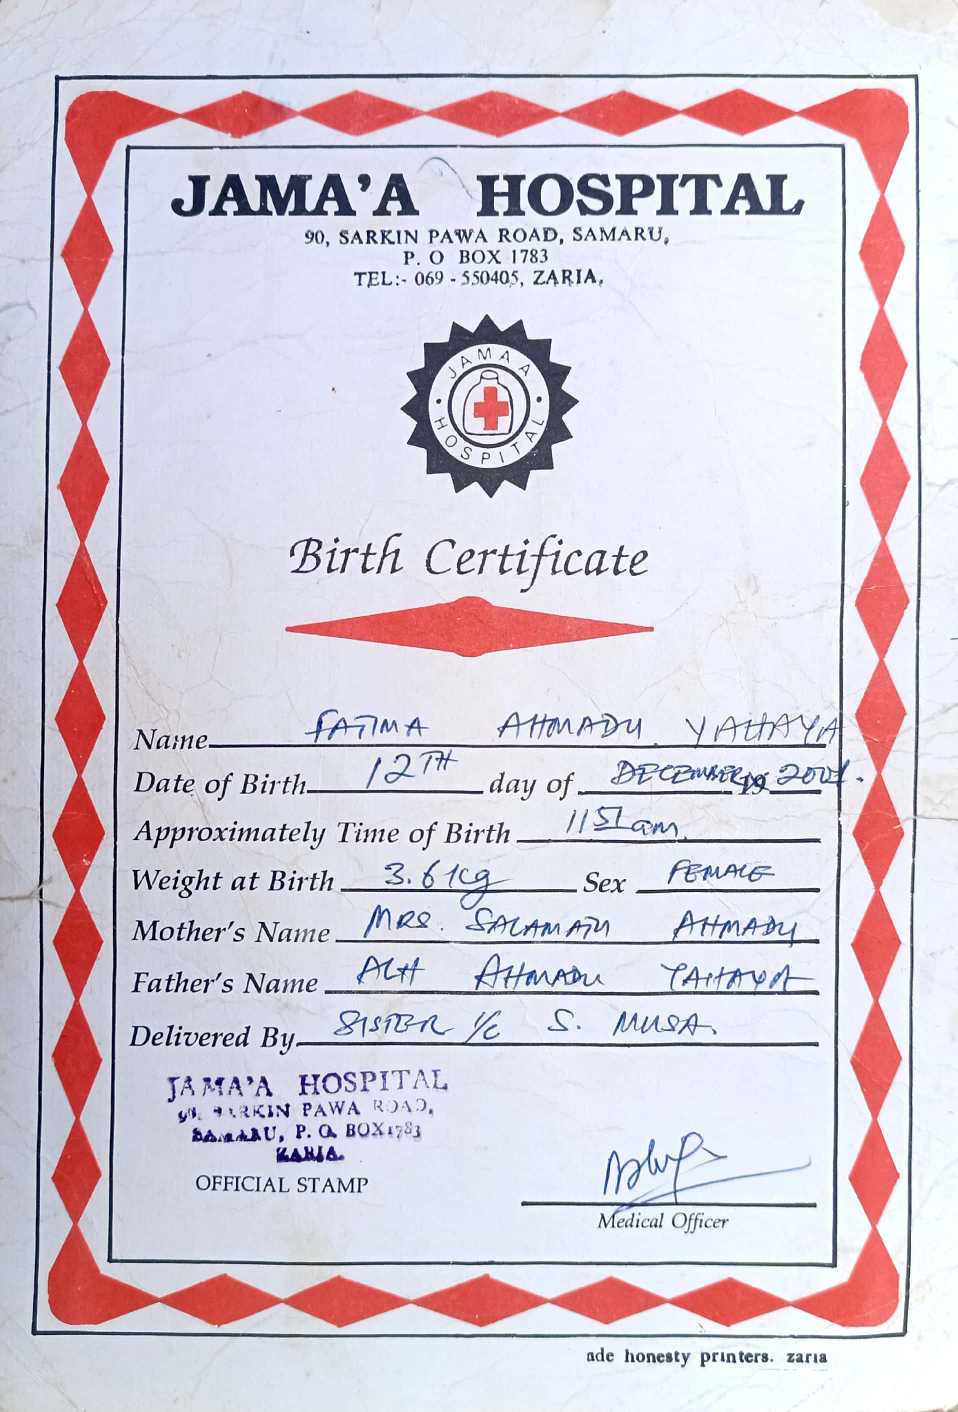 JAMA'A HOSPITAL
90, SARKIN PAWA ROAD, SAMARU,
P. O BOX 1783
TEL:- 069 - 550405, ZARIA.
JAMAA
HOSPITAL
Birth Certificate
Name FATIMA AHMADU YAHAYA
Date of Birth 12TH day of DECEMBER 19 2001.
Approximately Time of Birth am
Weight at Birth 3.6 kg Sex FEMALE
Mother's Name MRS. SALAMATU AHMADU
Father's Name ALH AHMADU YAHAYA
Delivered By SISTER I/C S. MUSA.
JAMA'A HOSPITAL
90, SARKIN PAWA ROAD,
SAMARU, P. O. BOX 1783
ZARIA.
OFFICIAL STAMP
Medical Officer
ade honesty printers. zaria